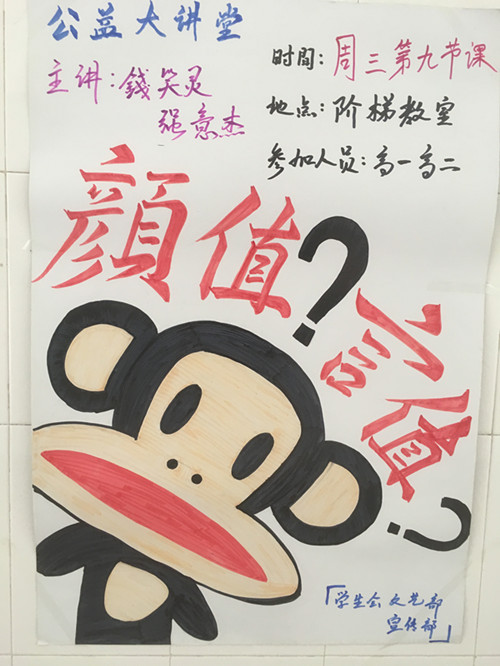 公益大讲堂
主讲:錢笑灵
强意杰
时間:周三第九节课
地点:阶梯教室
参加人员:高一高二
顔值?
言值?
「学生会文艺部
宣传部」